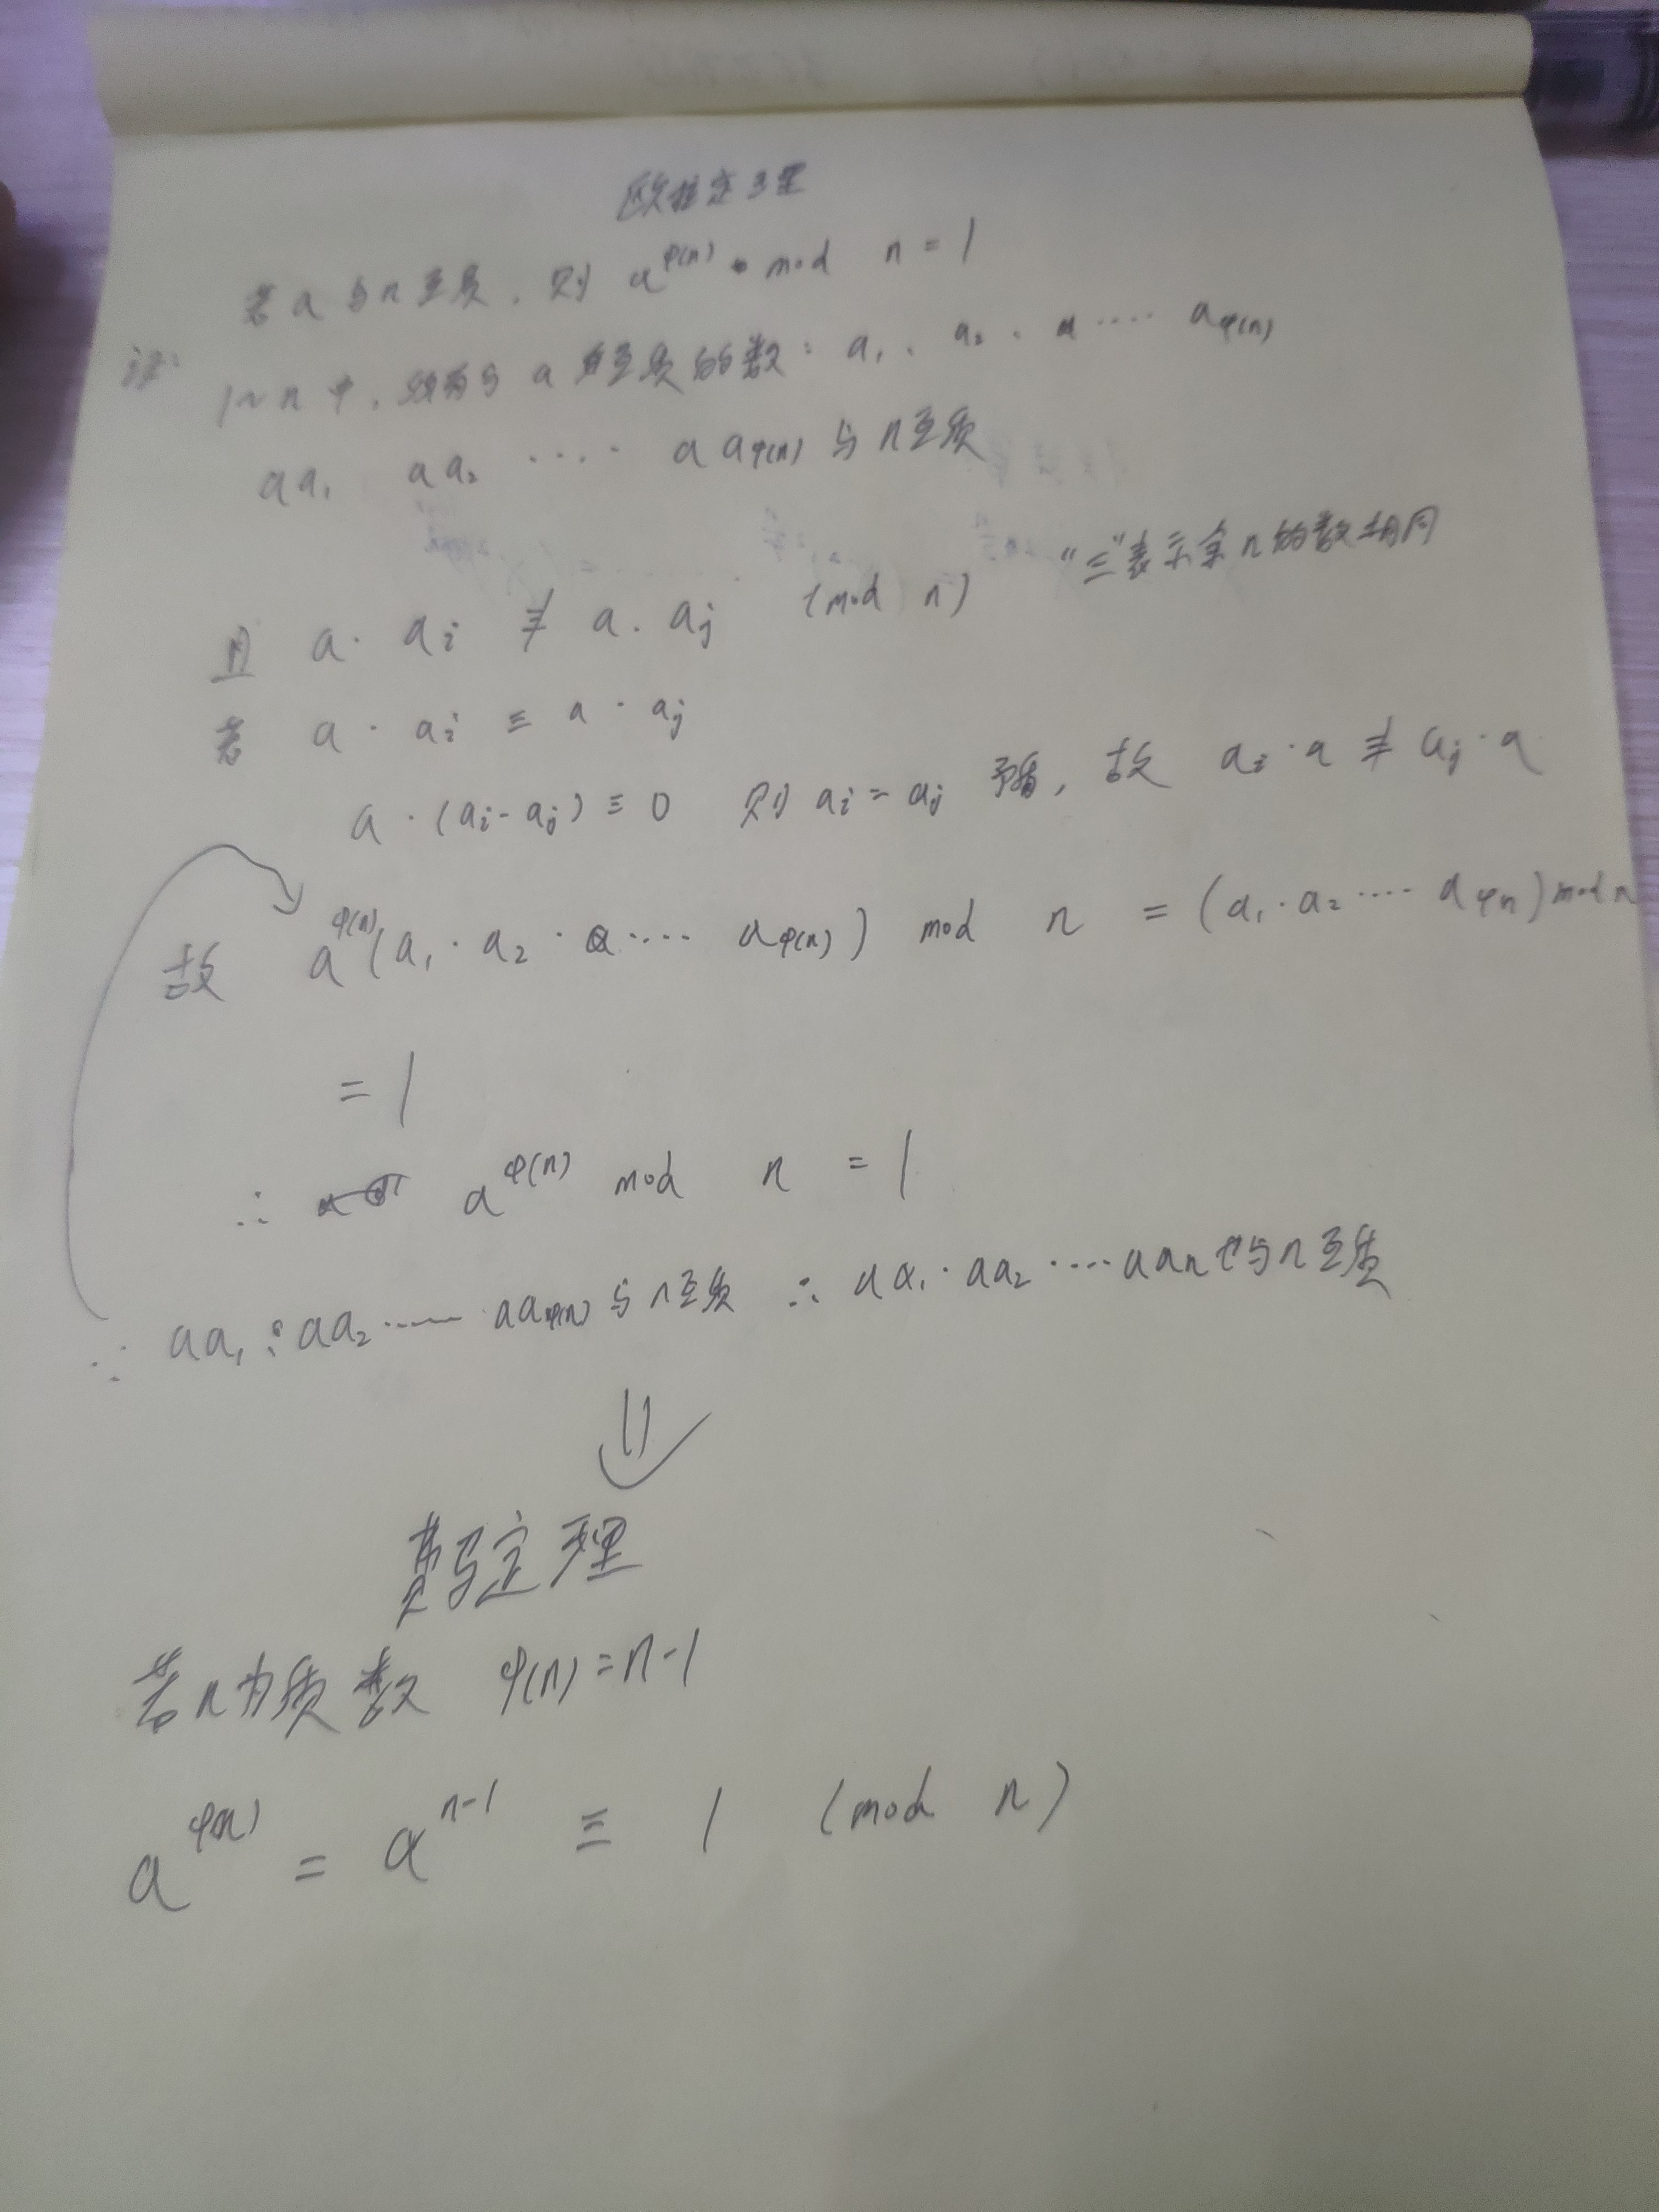 欧拉定理
若a与n互质,则 a^φ(n) mod n = 1
证:
1~n中,所有与a互质的数: a₁、a₂、a ···· a_φ(n)
aa₁ aa₂ ···· aa_φ(n) 与n互质
“≡”表示余n的数相同
且 a·aᵢ ≢ a·aⱼ (mod n)
若 a·aᵢ ≡ a·aⱼ
a·(aᵢ-aⱼ) ≡ 0 则 aᵢ=aⱼ 矛盾, 故 aᵢ·a ≢ aⱼ·a
故 a^φ(n) (a₁·a₂·a ···· a_φ(n)) mod n = (a₁·a₂ ···· a_φn) mod n
= 1
∴ a^φ(n) mod n = 1
∵ aa₁ : aa₂ ····· aa_φ(n) 与n互质 ∴ aa₁·aa₂ ···· aaₙ也与n互质
⇓
费马定理
若n为质数 φ(n)=n-1
a^φ(n) = a^n-1 ≡ 1 (mod n)